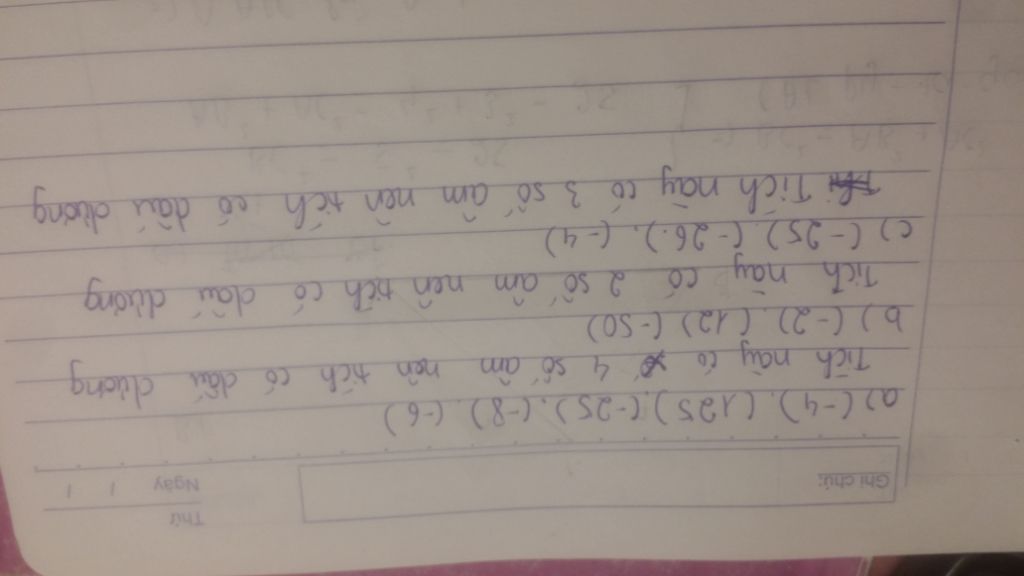 Thứ
Ngày / /
Ghi chú:
a) (-4). (125). (-25). (-8). (-6)
Tích này có 4 số âm nên tích có dấu dương
b) (-2). (12) (-50)
Tích này có 2 số âm nên tích có dấu dương
c) (-25). (-26.). (-4)
Tích này có 3 số âm nên tích có dấu dương